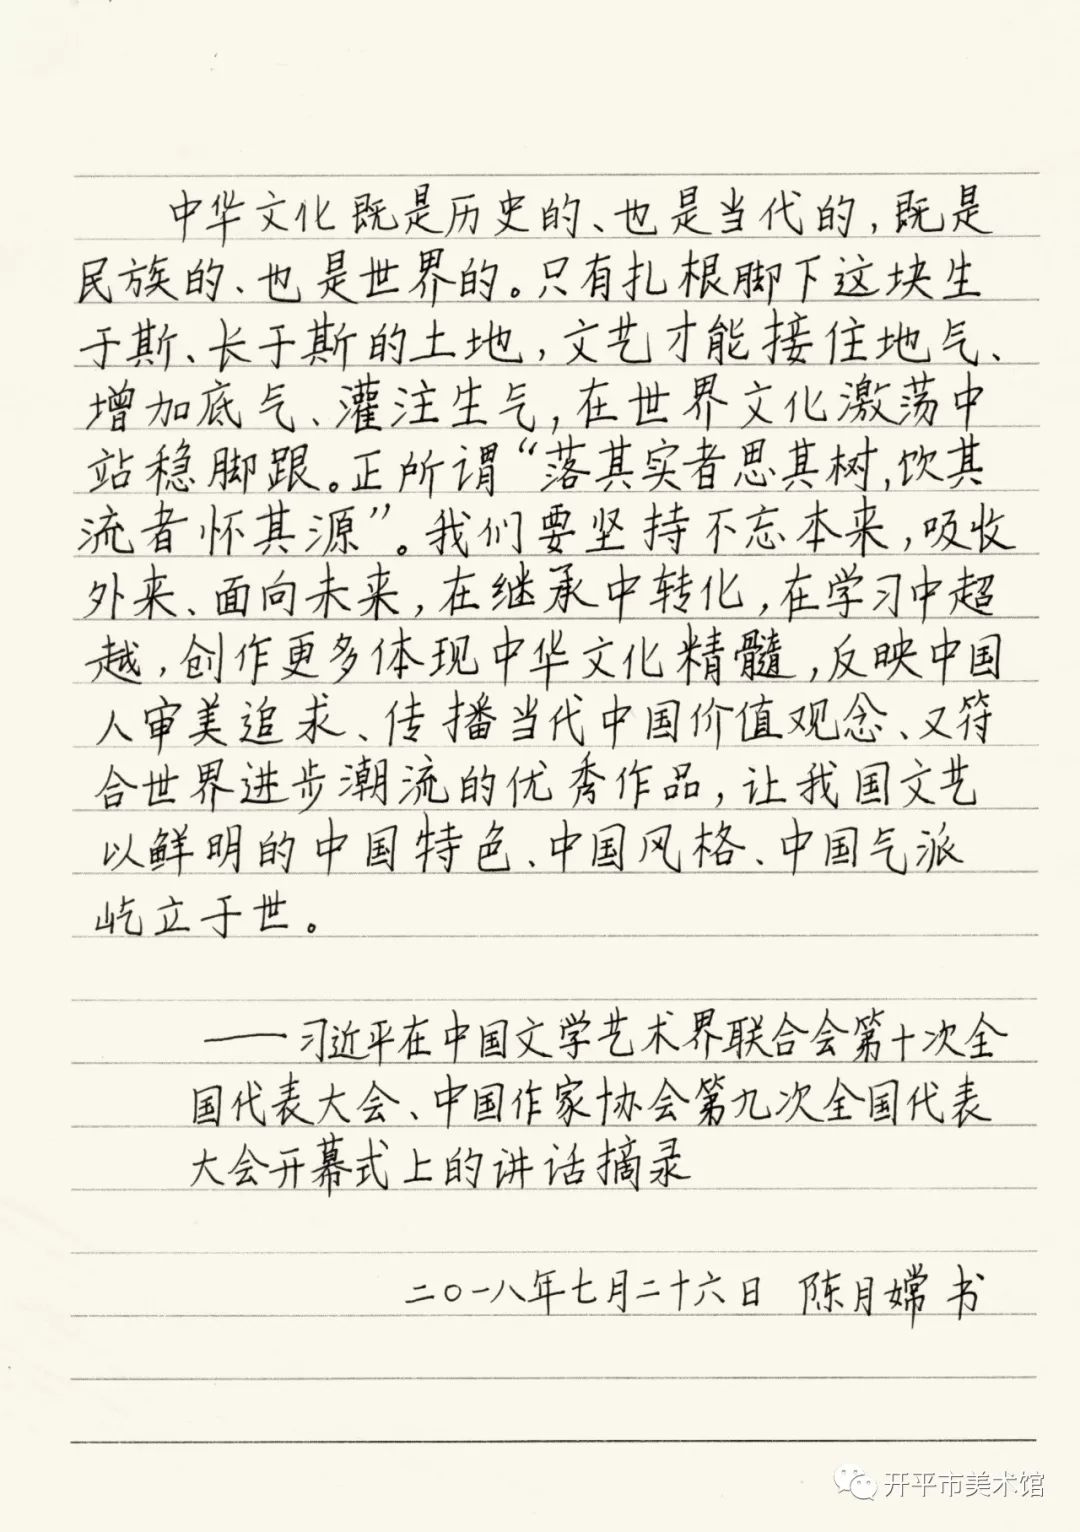 中华文化既是历史的、也是当代的，既是
民族的、也是世界的。只有扎根脚下这块生
于斯、长于斯的土地，文艺才能接住地气、
增加底气、灌注生气，在世界文化激荡中
站稳脚跟。正所谓“落其实者思其树，饮其
流者怀其源”。我们要坚持不忘本来，吸收
外来、面向未来，在继承中转化，在学习中超
越，创作更多体现中华文化精髓，反映中国
人审美追求、传播当代中国价值观念、又符
合世界进步潮流的优秀作品，让我国文艺
以鲜明的中国特色、中国风格、中国气派
屹立于世。
——习近平在中国文学艺术界联合会第十次全
国代表大会、中国作家协会第九次全国代表
大会开幕式上的讲话摘录
二〇一八年七月二十六日 陈月嫦 书
开平市美术馆